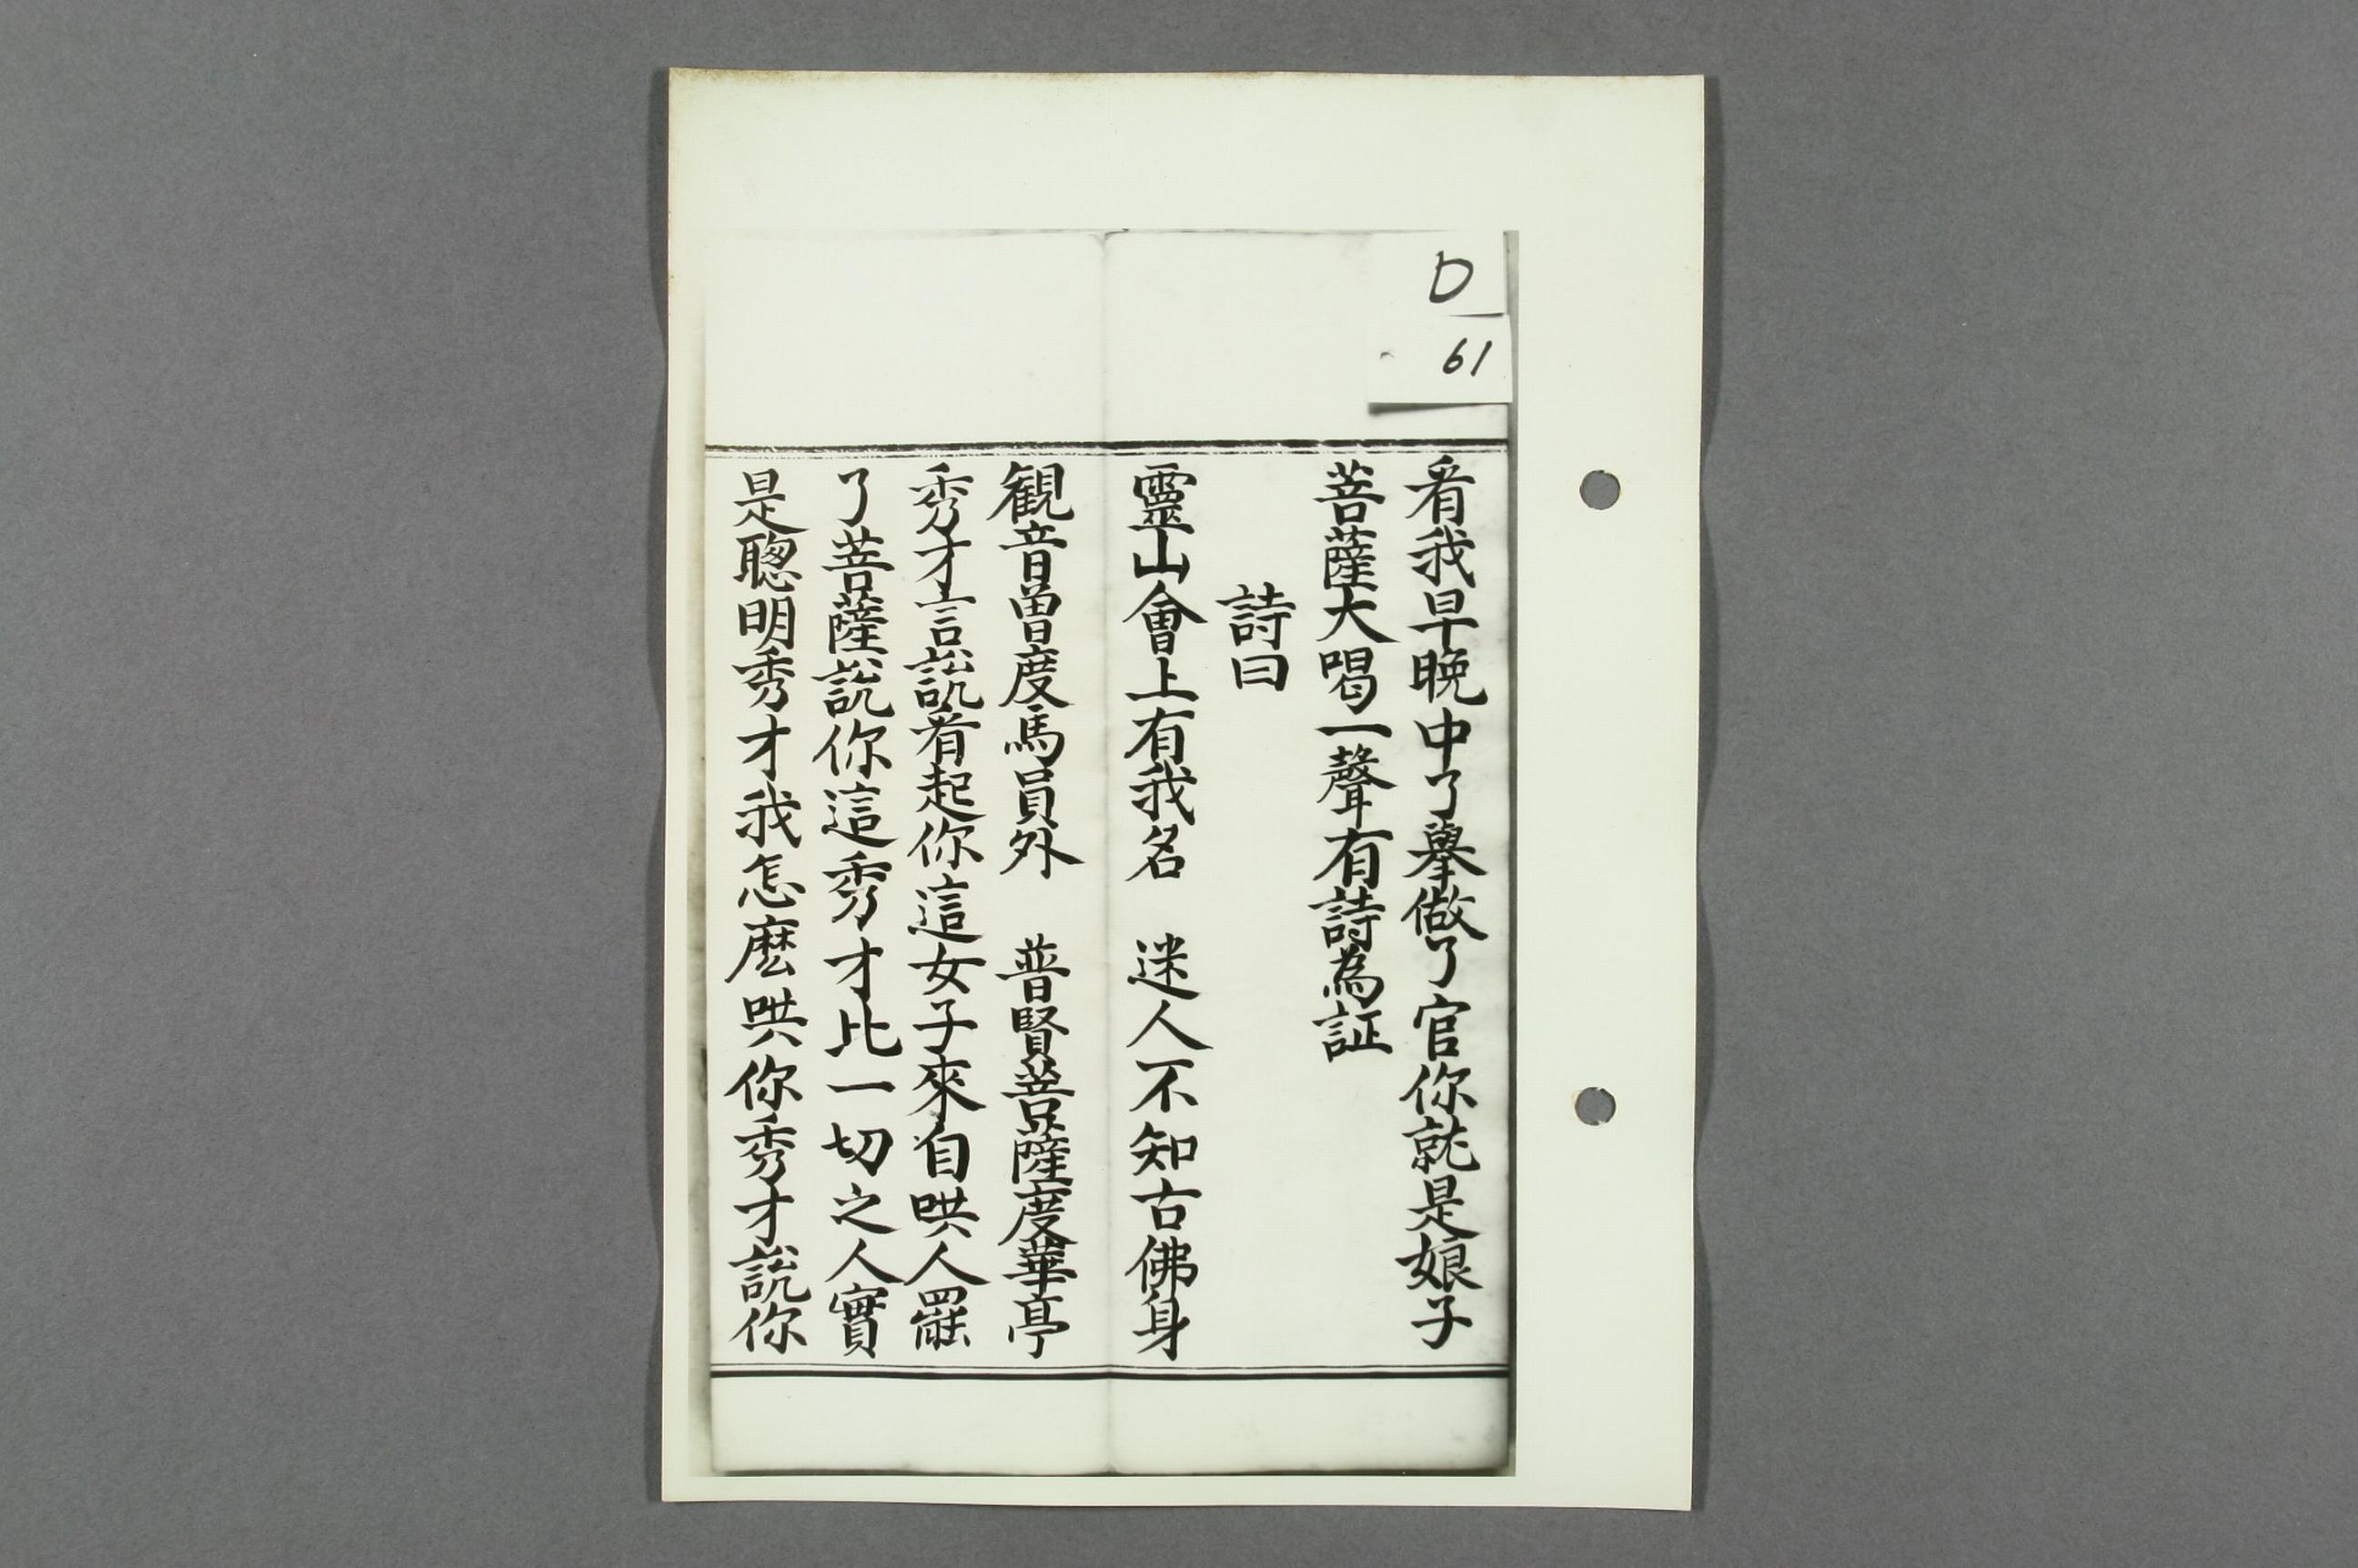 D
61
看我早晚中了擧做了官你就是娘子
菩薩大喝一聲有詩為証
詩曰
靈山會上有我名　迷人不知古佛身
観音曾度馬員外　普賢菩薩度華亭
秀才言說看起你這女子來自哄人羅
了菩薩說你這秀才比一切之人實
是聰明秀才我怎麽哄你秀才說你